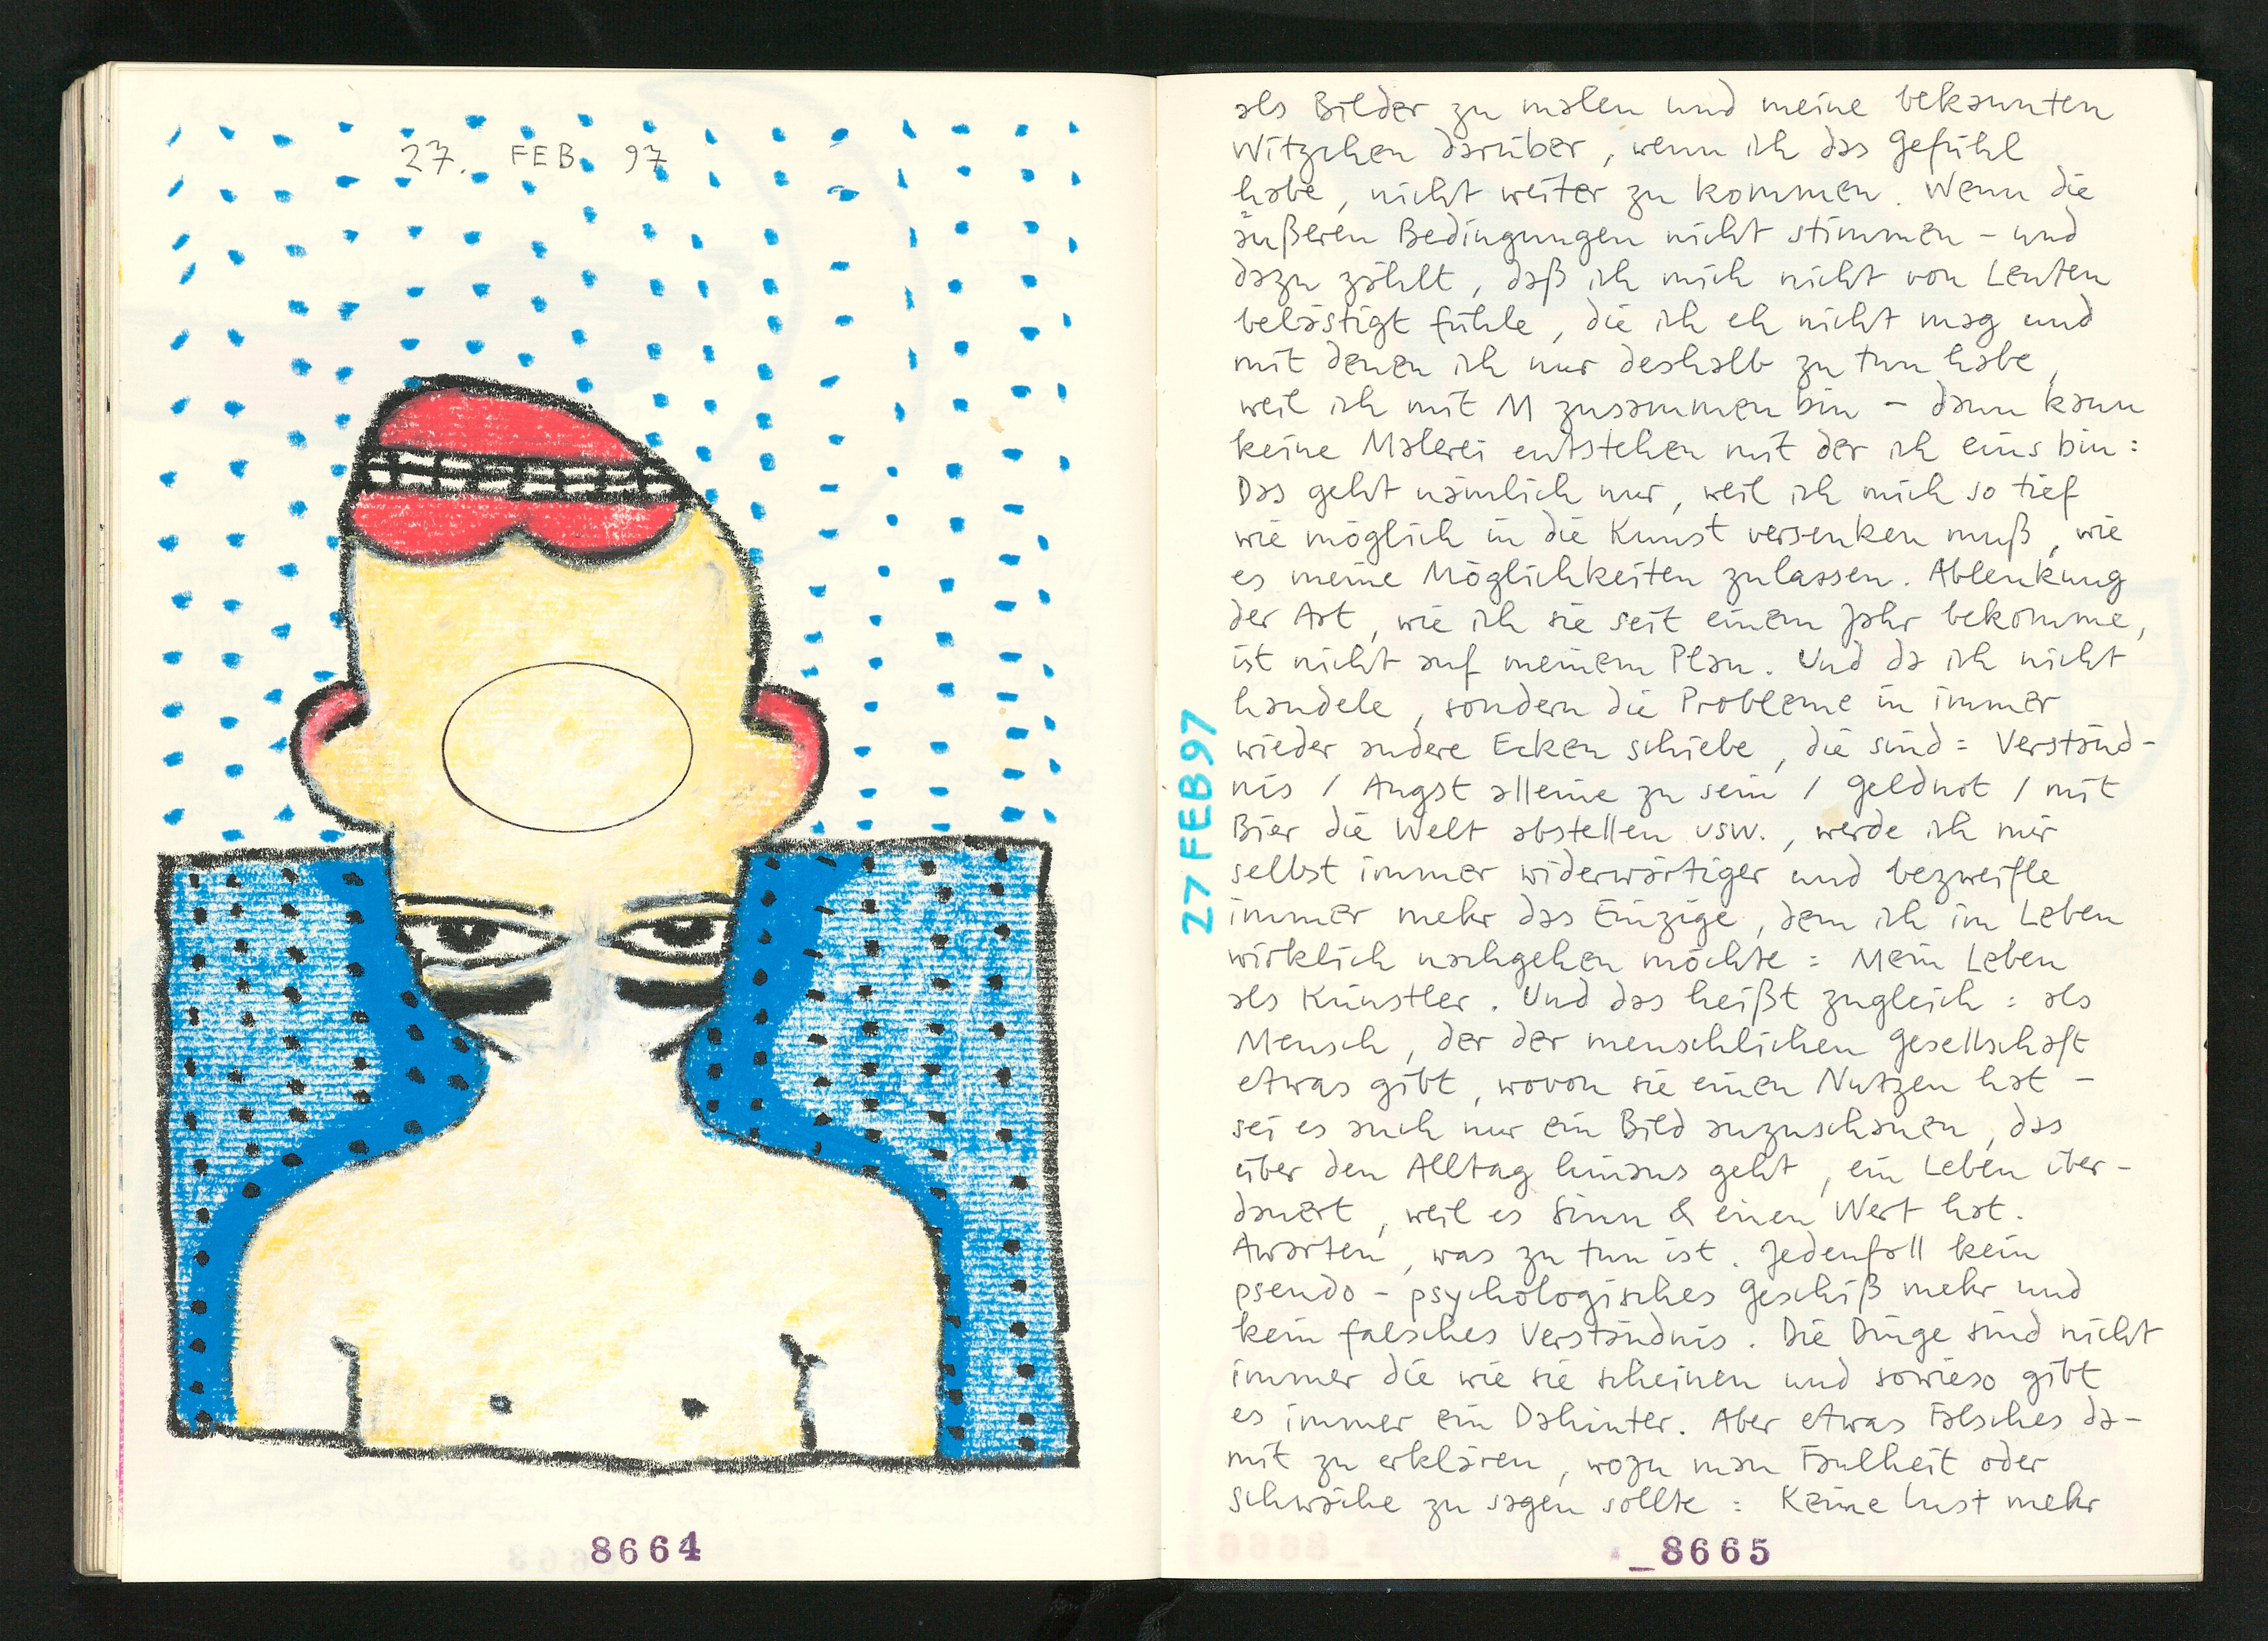 27. FEB. 97
8664
als Bilder zu malen und meine bekannten
Witzchen darüber, wenn ich das Gefühl
habe, nicht weiter zu kommen. Wenn die
äußeren Bedingungen nicht stimmen – und
dazu zählt, daß ich mich nicht von Leuten
belästigt fühle, die ich eh nicht mag und
mit denen ich nur deshalb zu tun habe,
weil ich mit M zusammen bin – dann kann
keine Malerei entstehen mit der ich eins bin:
Das geht nämlich nur, weil ich mich so tief
wie möglich in die Kunst versenken muß, wie
es meine Möglichkeiten zulassen. Ablenkung
der Art, wie ich sie seit einem Jahr bekomme,
ist nicht auf meinem Plan. Und da ich nicht
handele, sondern die Probleme in immer
wieder andere Ecken schiebe, die sind: Verständ-
nis / Angst alleine zu sein / Geldnot / mit
Bier die Welt abstellen usw., werde ich mir
selbst immer widerwärtiger und bezweifle
immer mehr das Einzige, dem ich im Leben
wirklich nachgehen möchte: Mein Leben
als Künstler. Und das heißt zugleich: als
Mensch, der der menschlichen Gesellschaft
etwas gibt, wovon sie einen Nutzen hat –
sei es auch nur ein Bild anzuschauen, das
über den Alltag hinaus geht, ein Leben über-
dauert, weil es Sinn & einen Wert hat.
Awarten, was zu tun ist. Jedenfall kein
pseudo-psychologisches Geschiß mehr und
kein falsches Verständnis. Die Dinge sind nicht
immer die wie sie scheinen und sowieso gibt
es immer ein Dahinter. Aber etwas Falsches da-
mit zu erklären, wozu man Faulheit oder
Schwäche zu sagen sollte: Keine Lust mehr
27 FEB 97
_8665